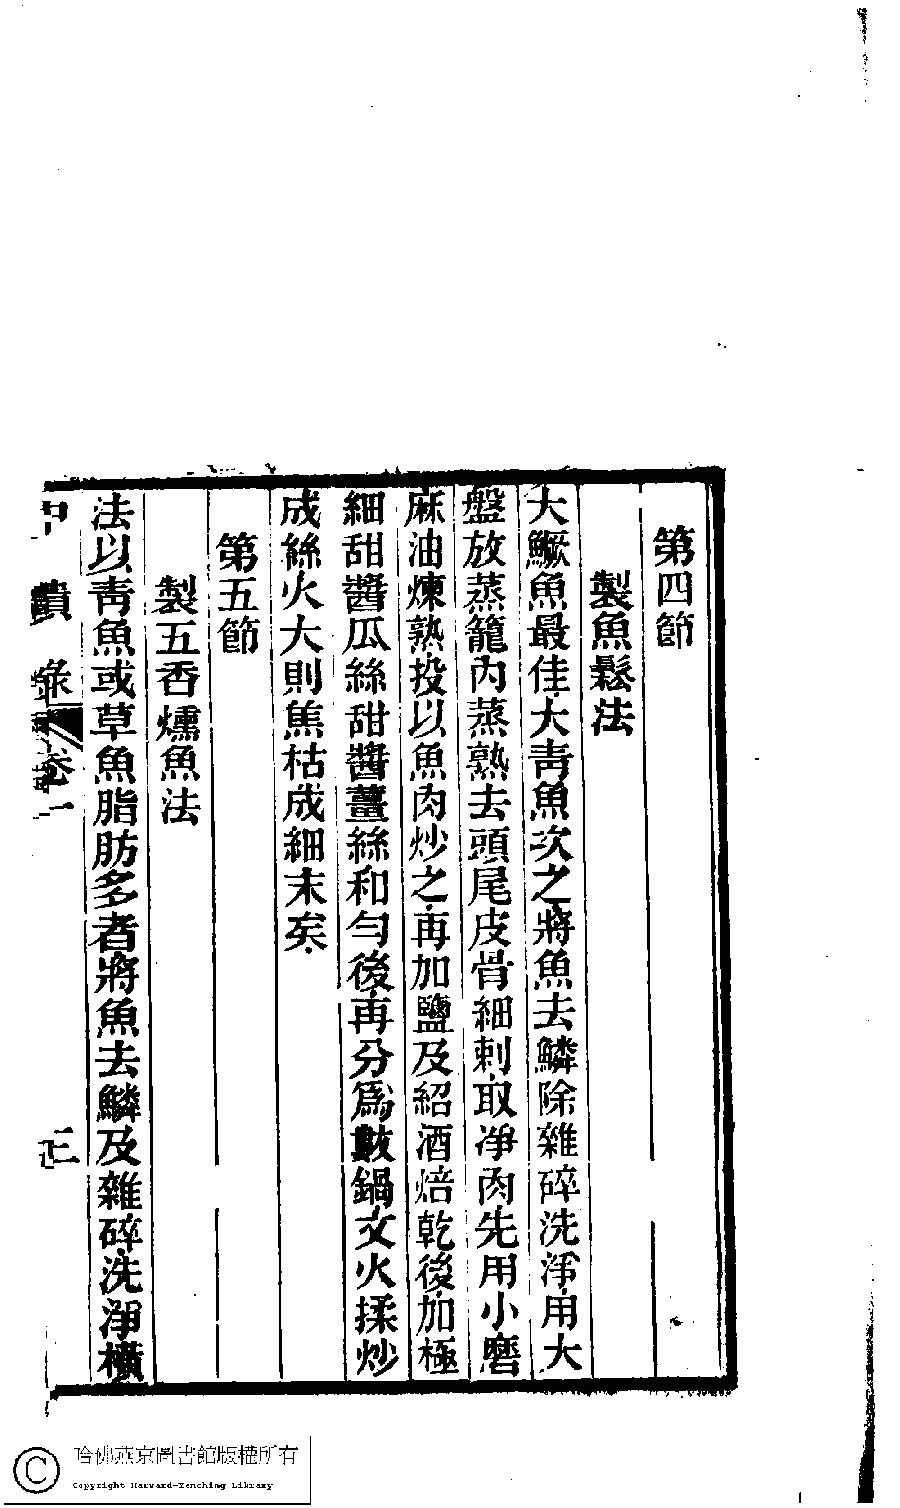 第四節
製魚鬆法
大鱖魚最佳大青魚次之將魚去鱗除雜碎洗淨用大
盤放蒸籠內蒸熟去頭尾皮骨細刺取淨肉先用小磨
麻油煉熟投以魚肉炒之再加鹽及紹酒焙乾後加極
細甜醬瓜絲甜醬薑絲和勻後再分爲數鍋文火揉炒
成絲火大則焦枯成細末矣
第五節
製五香燻魚法
法以青魚或草魚脂肪多者將魚去鱗及雜碎洗淨橫
中饋錄 卷一
哈佛燕京圖書館版權所有
Copyright Harvard-Yenching Library